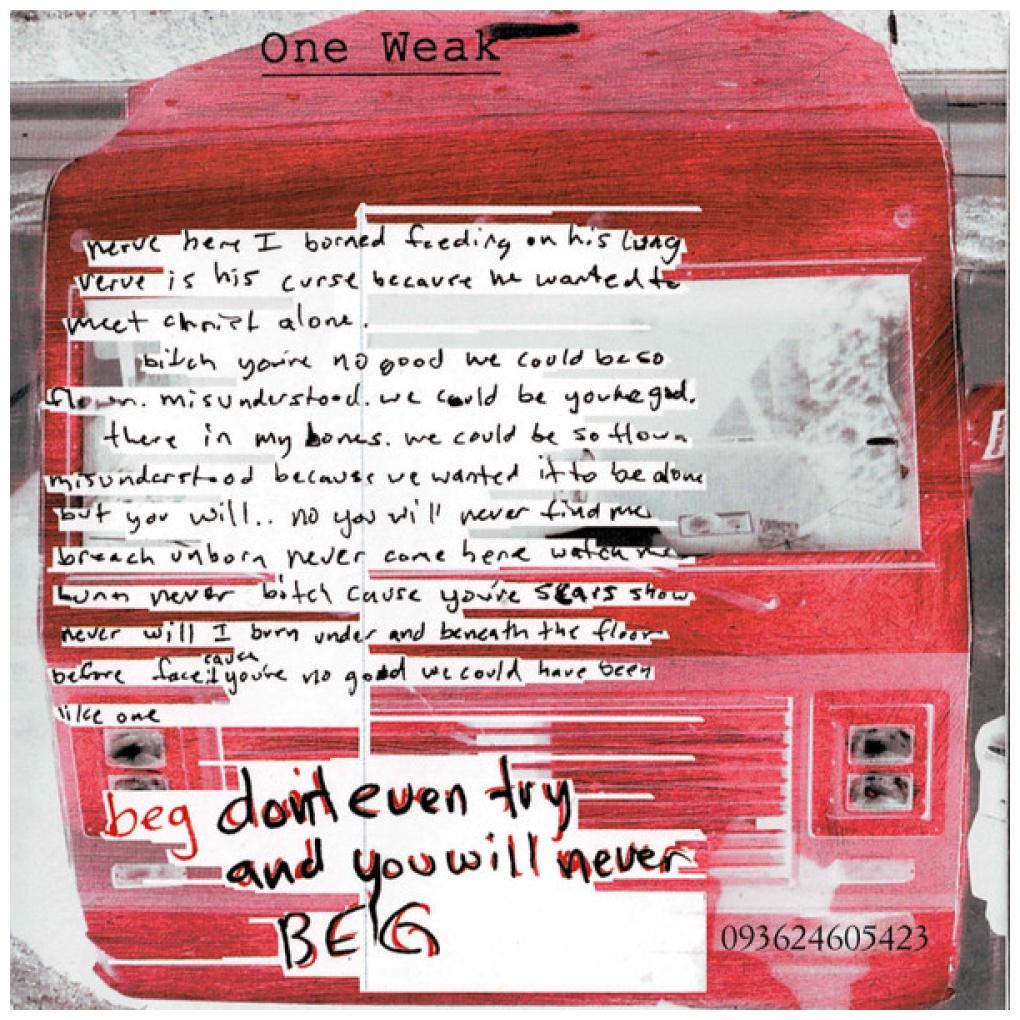 One Weak
nerve here I borned feeding on his lung
verve is his curse because he wanted to
meet christ alone.
bitch you're no good we could be so
flown. misunderstood. we could be youre god.
there in my bones. we could be so flown
misunderstood because we wanted it to be alone
but you will.. no you will never find me
breach unborn never come here watch me
burn never bitch cause you're scars show
never will I burn under and beneath the floor
before face it cause you're no good we could have been
like one
beg don't even try
and you will never
BEG
093624605423